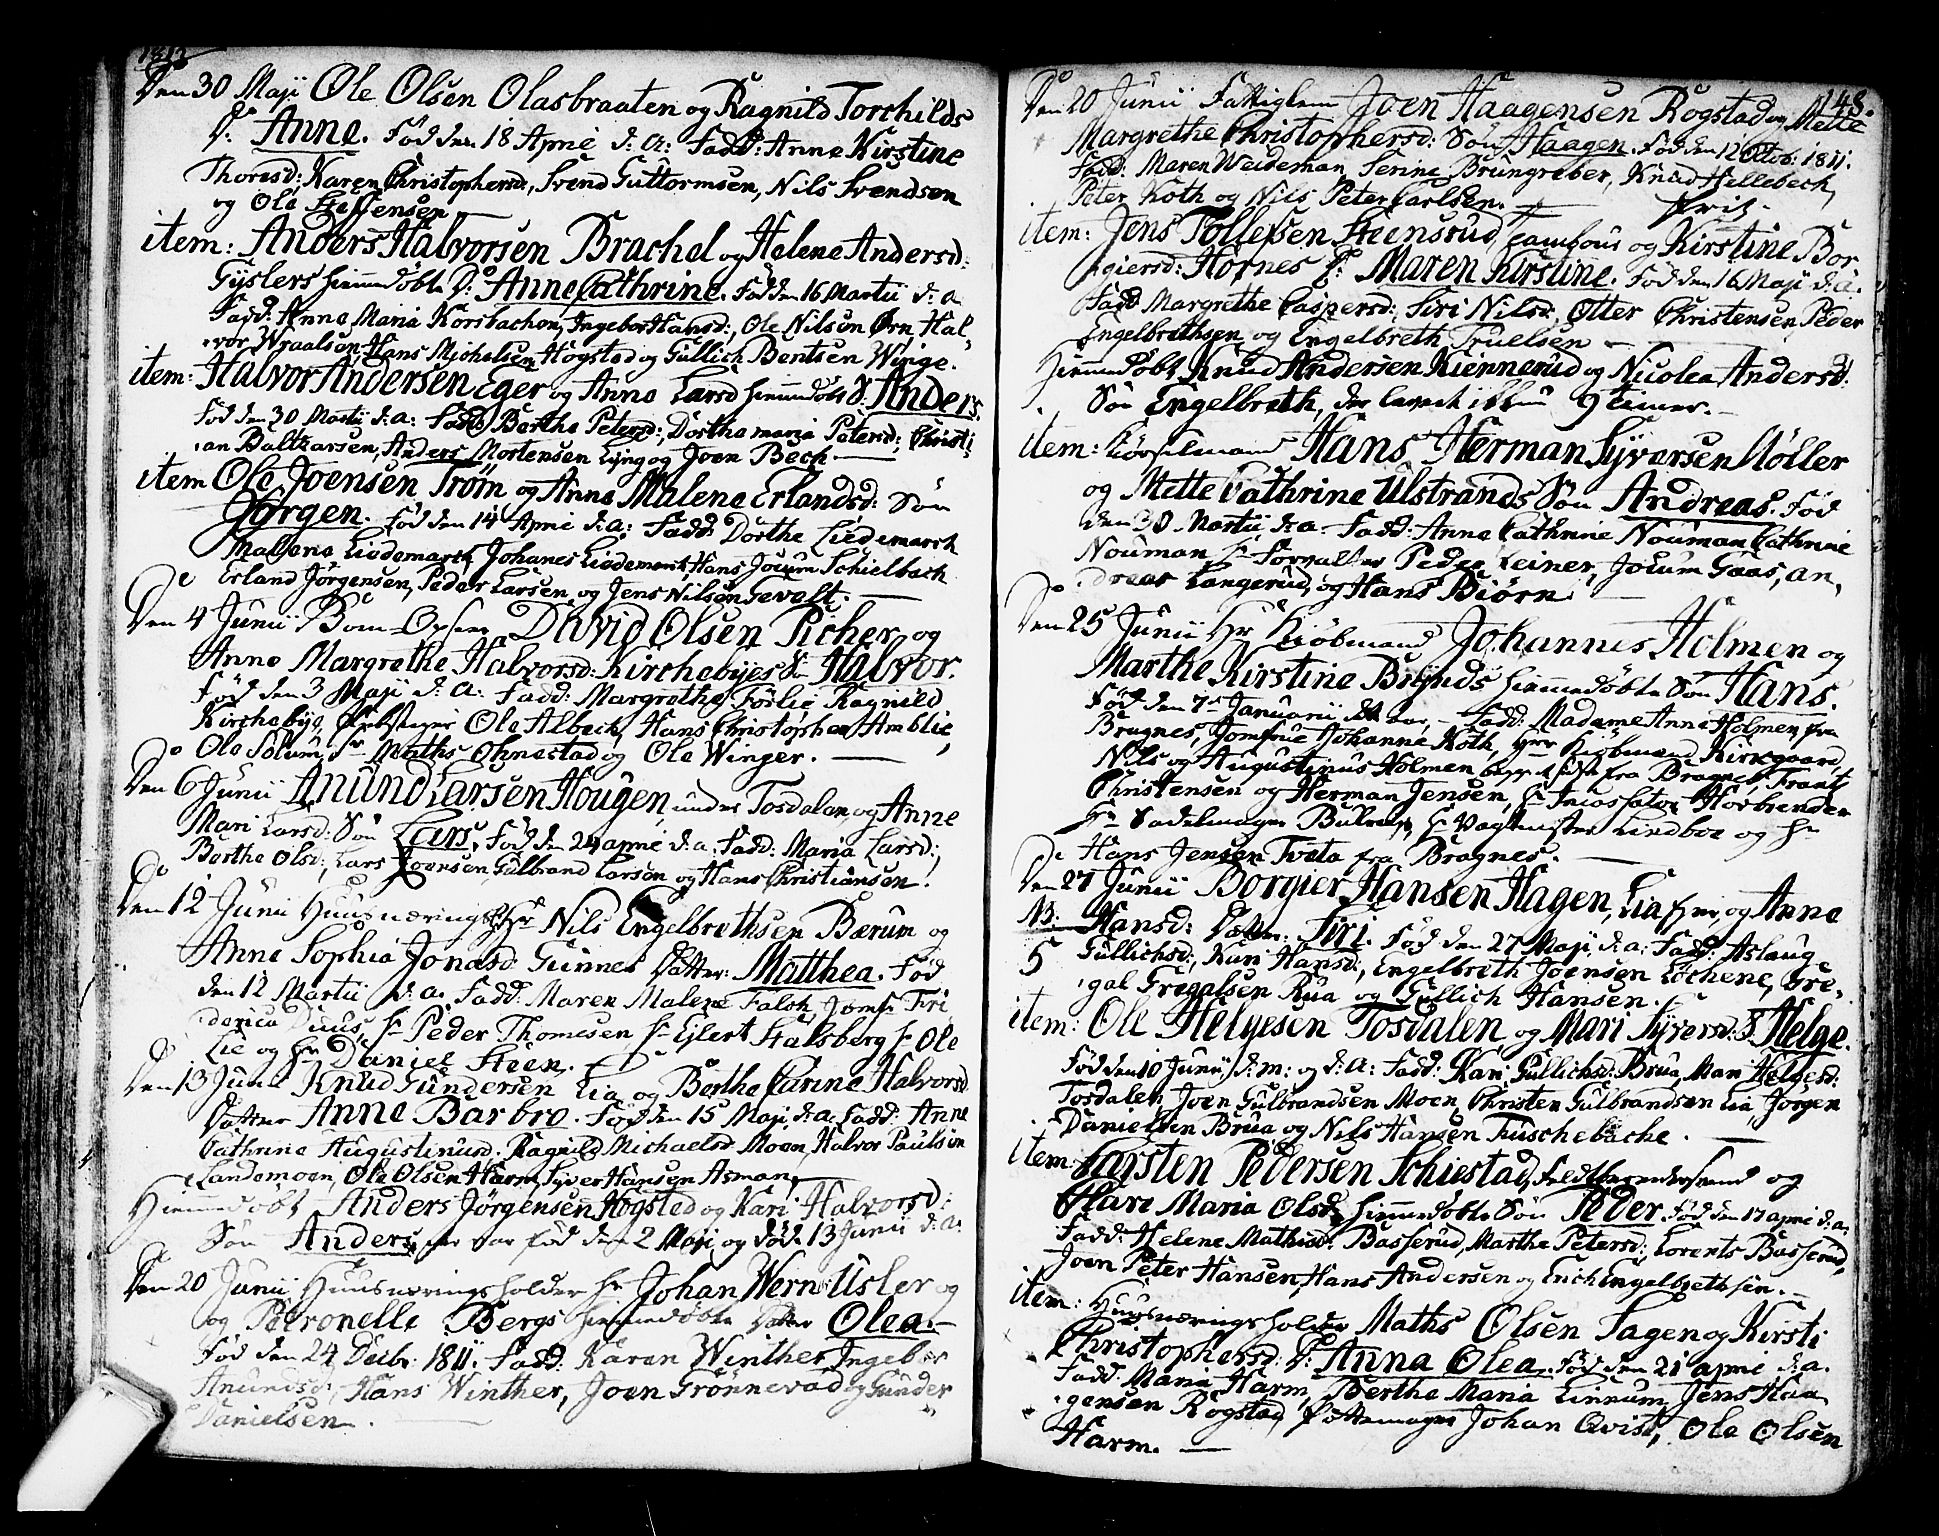 1812
Den 30 Maji Ole Olsen Olasbraaten og Ragnild Torchilds
D: Anne. Fød den 18 April d. a: Fadd: Anne Kirstine
Thoresd: Karen Christophersd, Svend Guttormsen, Nils Svendsen
og Ole Steffensen
item: Anders Halvorsen Brachel og Helene Andersd:
Gyslers hiemmedøbte D. Anne Cathrine. Fød den 16 Martii d. a.
Fadd: Anne Maria Korsbachen, Ingebor Hansd:, Ole Nilsen Ørn Hal-
vor Wraalsen, Hans Michelsen Hogstad og Gullich Bentsen Winge.
item: Halvor Andersen Eger og Anne Larsd hiemmedøbt S: Anders.
Fød den 30 Martii d. a: Fadd: Berthe Petersd:, Dorthe maria Petersd:, Christi
an Baltzarsen, Anders Mortensen Lyng og Joen Bech.
item Ole Joensen Trøm og Anne Malene Erlandsd: Søn
Jørgen. Fød den 14 April d. a: Fadd: Dorthe Liedemarch
Malene Liedemarch, Johanes Liedemarch, Hans Jocum Schielbech
Erland Jørgensen, Peder Larsen og Jens Nilsen Gevalt.
Den 4 Junii David Olsen Picher og
Anne Margrethe Halvorsd: Kirchebyes Halvor.
Fød den 3 Maji d. a: Fadd: Margrethe Førlie Ragnild
Kirchebye Ole Albech, Hans Christopher Amblie,
Ole Solum, Hr Maths Ohnestad og Ole Winger.
Den 6 Junii Anund Larsen Hougen under Tosdalen, og Anne
Mari Larsd: Søn Lars. Fød den 24 april d. a. Fadd: Maria Larsd:,
Berthe Olsd:, Lars Joensen, Gulbrand Larsen og Hans Christiansen.
Den 12 Junii Huusnærings Hr Nils Engelbrethsen Bærum og
Anne Sophia Jonasd: Gunnes Datter: Matthea. Fød
den 12 Martii d. a. Fadd: Maren Malene Falch, Jomf: Fri
derica Duus, Hr Peder Thomesen Hr Ejlert Stalsberg Hr Ole
Lie og Hr Daniel Steen.
Den 13 Junii Knud Gundersen Lia og Berthe Carine Halvorsd.
Datter Anne Barbro. Fød den 15 Maji d. a. Fadd: Anne
Cathrine Augustinusd. Ragnild Michaelsd Moen, Halvor Paulsen
Landemoen, Ole Olsen Harm, Syver Hansen Asman,
Hiemmedøbt Anders Jørgensen Hogstad og Kari Halvorsd:
Søn Anders, som var fød den 2 Maji og døde 13 Junii d. a.
Den 20 Junii Huusnæringsholder Hr Johan Werns Usler og
og Petronelle Bergs hiemmedøbte Datter Olea.
Fød den 24 Decbr: 1811. Fadd: Karen Winther, Ingebor
Anundsd:, Hans Winther, Joen Grønnevad og Gunder
Danielsen.
148.
Den 20 Junii Fattiglem Joen Haagensen Rogstad og Mette
Margrethe Christophersd: Søn Haagen. Fød den 12 Octob: 1811.
Fadd: Maren Weideman, Serine Brungreber, Knud Hellebech,
Peter Koth og Nils Peter Carlsen.
item: Jens Tollefsen Steensrud og Kirstine Bor
giersd: Hornes D: Maren Kirstine. Fød den 16 Maji d. a.
Fadd Margrethe Caspersd: Siri Nilsd. Otter Christensen Peder
Engelbrethsen og Engelbreth Truelsen
Hiemmedøbt Knud Andersen Kiennerud og Nicolea Andersd:
Søn Engelbreth, der levede ikkun 9 timer.
item: Hans Herman Syversen Møller
og Mette Cathrine Ulstrands Søn Andreas. Fød
den 30 Martii d. a. Fadd: Anne Cathrine Nouman Cathrine
Nouman Hr Forvalter Peder Leiner, Jocum Gaas, An,
dreas Langerud, og Hans Biørn.
Den 25 Junii Hr Kiøbmand Johannes Holmen og
Marthe Kirstine Brynds hiemmedøbte Søn Hans.
Fød den 7de Januarii dette aar. Fadd: Madame Anne Holmen fra
Bragnes, Jomfrue Johanne Koth, Herr Kiøbmand Kirkgaard,
Nils og Augustinus Holmen begge fra Bragnes, Frantz
Christensen og Herman Jensen, Horbrender
Hr Sadelmager Hr Vagtmester Lindboe og Hr
Hans Jensen Tveta fra Bragnes.
Den 27 Junii Borgier Hansen Hagen, Lia og Anne
NB. Hansd: Datter: Siri. Fød den 27 Maji d. a: Fadd: Aslaug
5 Gullichsd:, Kari Hansd:, Engelbreth Joensen Lochene, Gre-
gal Gregalsen Rua og Gullich Hansen.
item: Ole Helgesen Tosdalen og Mari Syversd: S Helge.
Fød den 10 Junii d: m: og d. a: Fadd: Kari Gullichsd: Brua, Mari Helgesd:
Tosdalen, Joen Gulbrandsen Moen, Christen Gulbrandsen Lia, Jørgen
Danielsen Brua og Nils Hansen Tuschebache.
item Carsten Pedersen Schiestad og
Mari Maria Olsd: hiemmedøbte Søn Peder. Fød den 17 april d: a.
Fadd: Helene Mathisd. Basserud, Marthe Petersd:, Lorents Basserud,
Joen Peter Hansen, Hans Andersen og Erich Engelbrethsen.
item: Huusnæringsholder Maths Olsen Sagen og Kirsti
Christophersd: D: Anna Olea. Fød den 21 april d: a.
Fadd: Maria Harm, Berthe Maria Linnum, Jens Haa
gensen Rogstad, Pottemager Johan Qvist, Ole Olsen
Harm.